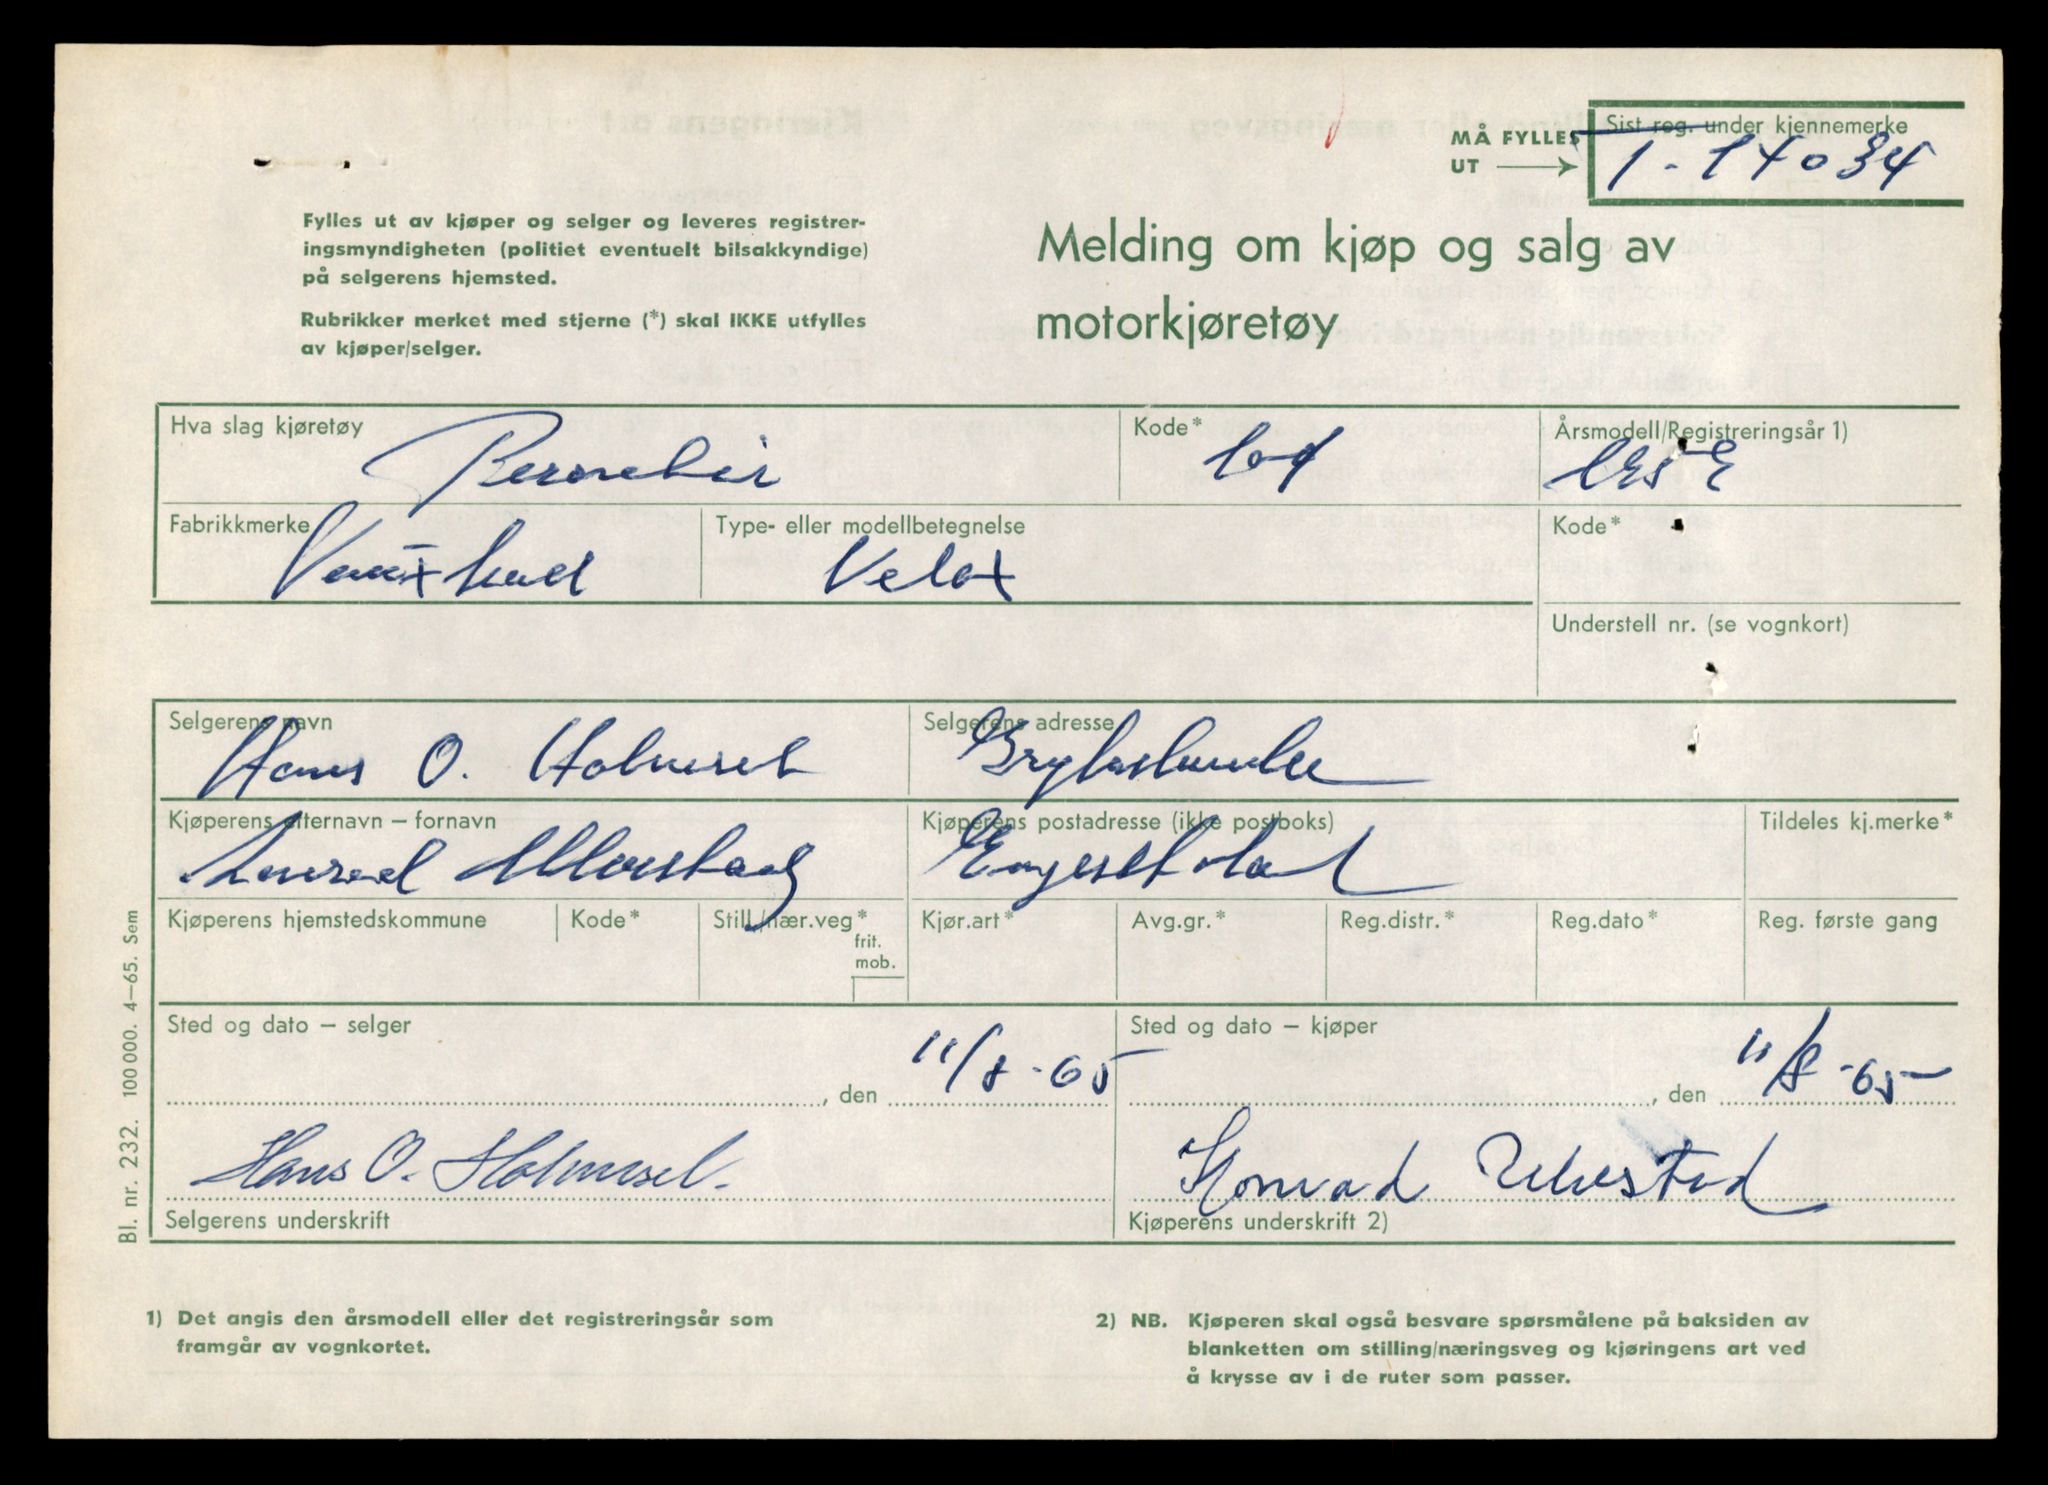 MÅ FYLLES
UT
Sist reg. under kjennemerke
1-14034
Fylles ut av kjøper og selger og leveres registrer-
ingsmyndigheten (politiet eventuelt bilsakkyndige)
på selgerens hjemsted.
Rubrikker merket med stjerne (*) skal IKKE utfylles
av kjøper/selger.
Melding om kjøp og salg av
motorkjøretøy
Hva slag kjøretøy
Personbil
Kode*
Årsmodell/Registreringsår 1)
Fabrikkmerke
Vauxhall
Type- eller modellbetegnelse
Velox
Kode*
Understell nr. (se vognkort)
Selgerens navn
Hans O. Holmset
Selgerens adresse
Kjøperens etternavn – fornavn
Konrad Ulvestad
Kjøperens postadresse (ikke postboks)
Engesetdal
Tildeles kj.merke*
Kjøperens hjemstedskommune
Kode*
Still/nær.veg*
frit.
mob.
Kjør.art*
Avg.gr.*
Reg.distr.*
Reg.dato*
Reg. første gang
Sted og dato – selger
, den 11/8-65
Sted og dato – kjøper
, den 11/8-65
Hans O. Holmset.
Selgerens underskrift
Konrad Ulvestad
Kjøperens underskrift 2)
Bl. nr. 232. 100 000. 4–65. Sem
1) Det angis den årsmodell eller det registreringsår som
framgår av vognkortet.
2) NB. Kjøperen skal også besvare spørsmålene på baksiden av
blanketten om stilling/næringsveg og kjøringens art ved
å krysse av i de ruter som passer.